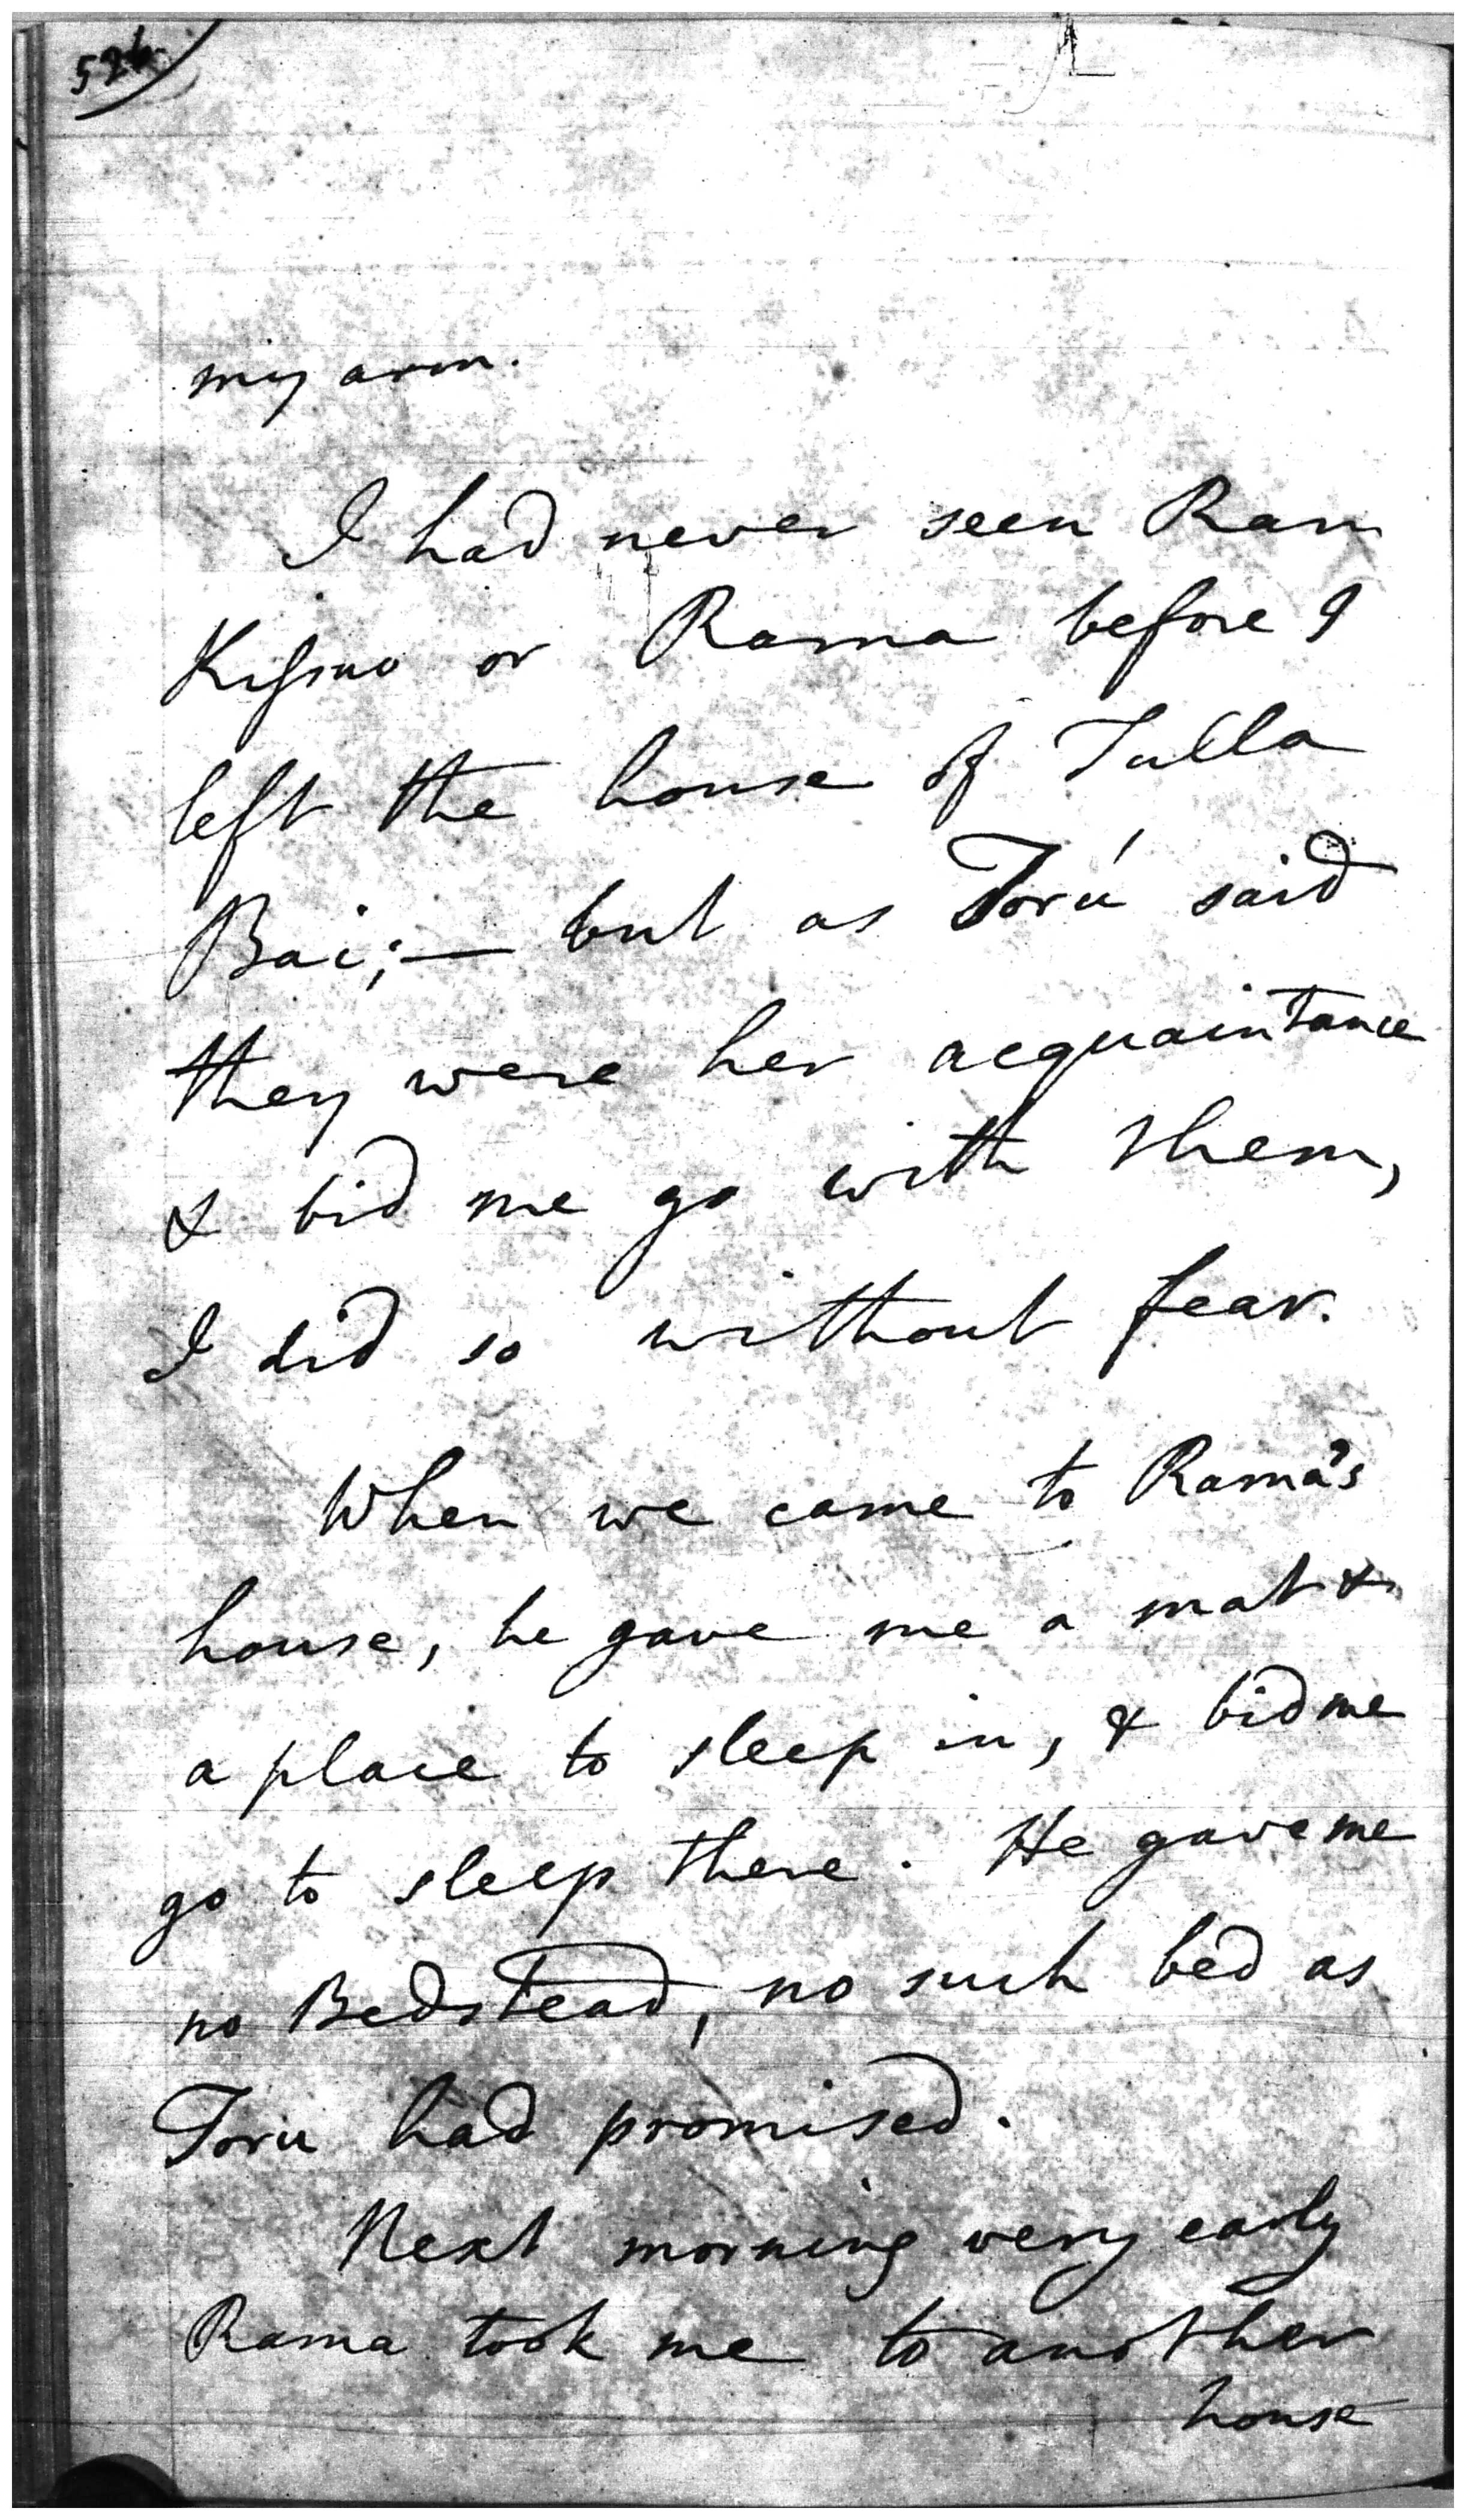 526
my arm.
I had never seen Ram
Kissno or Rama before I
left the house of Tulla
Bai;— but as Torú said
they were her acquaintance
& bid me go with them,
I did so without fear.
When we came to Rama's
house, he gave me a mat &
a place to sleep in, & bid me
go to sleep there. He gave me
no Bedstead, no such bed as
Toru had promised.
Next morning very early
Rama took me to another
house